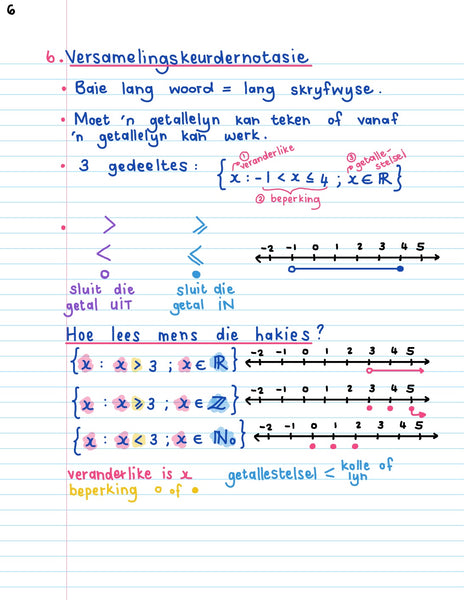 6
6. Versamelingskeurdernotasie
• Baie lang woord = lang skryfwyse.
• Moet 'n getallelyn kan teken of vanaf
'n getallelyn kan werk.
• 3 gedeeltes : {x : -1 < x ≤ 4 ; x ∈ ℝ}
① veranderlike
③ getalle-
stelsel
② beperking
• > ⩾
< ⩽
○ ●
sluit die getal UIT
sluit die getal IN
-2 -1 0 1 2 3 4 5
Hoe lees mens die hakies?
{x : x > 3 ; x ∈ ℝ} -2 -1 0 1 2 3 4 5
{x : x ⩾ 3 ; x ∈ ℤ} -2 -1 0 1 2 3 4 5
{x : x < 3 ; x ∈ ℕ₀} -2 -1 0 1 2 3 4 5
veranderlike is x
beperking ○ of ●
getallestelsel < kolle of
lyn